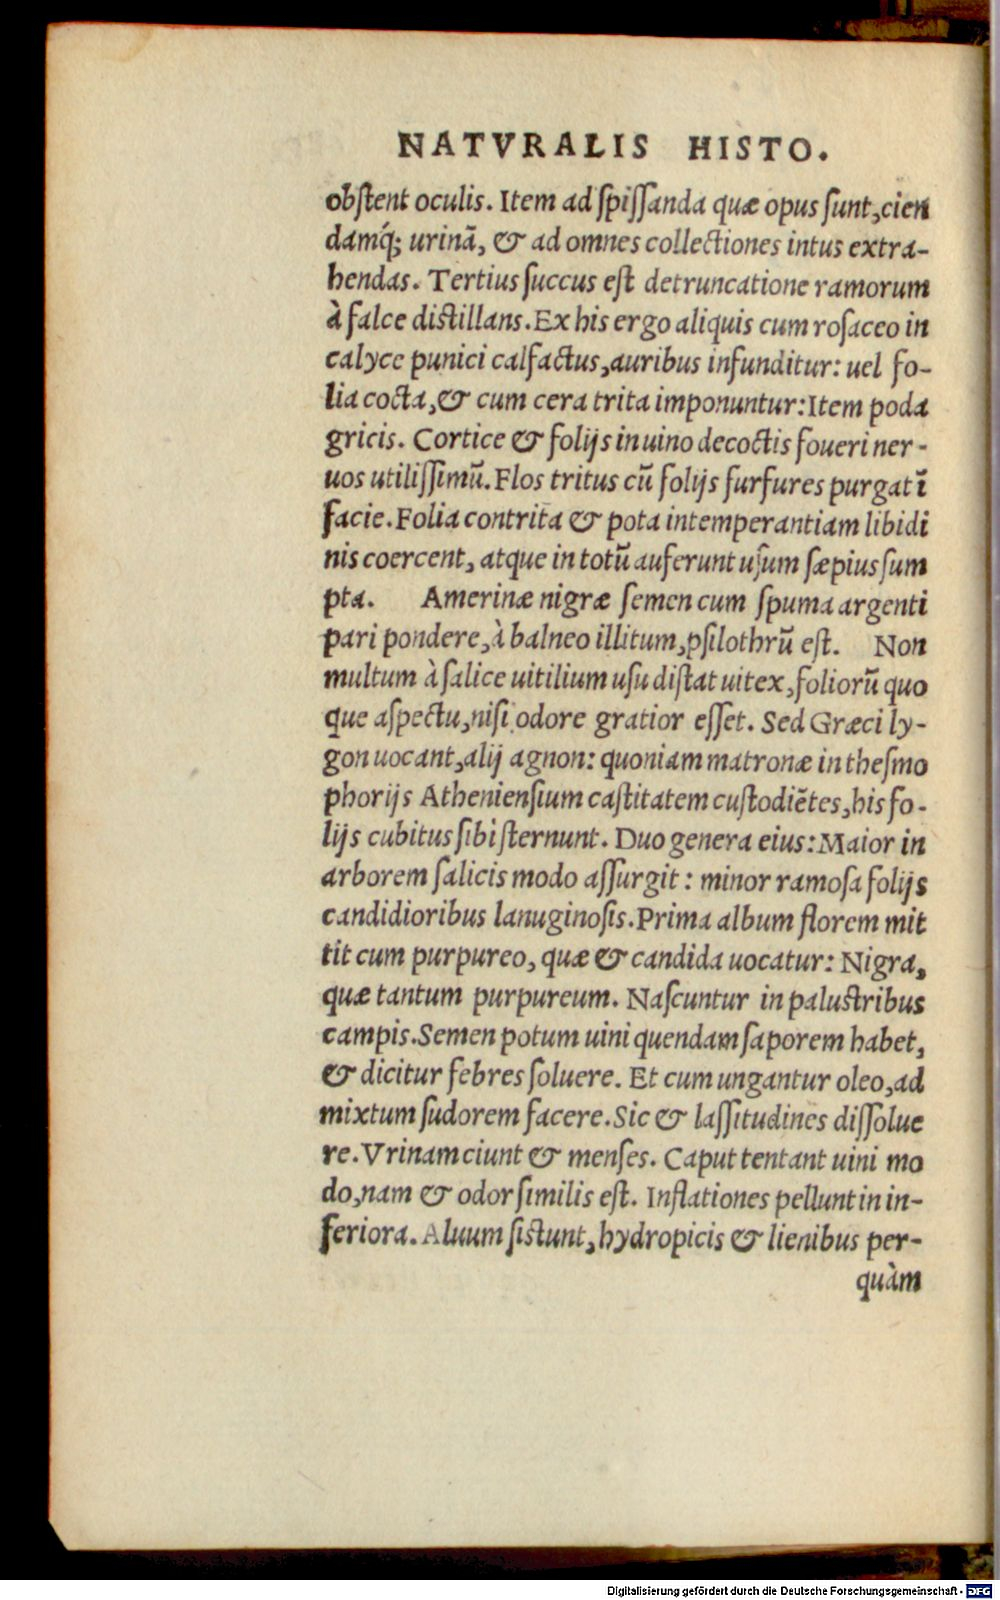 NATVRALIS HISTO.
obſtent oculis. Item ad ſpiſſanda quæ opus ſunt, cien
damq́; urinã, & ad omnes collectiones intus extra-
hendas. Tertius ſuccus eſt detruncatione ramorum
à falce diſtillans. Ex his ergo aliquis cum roſaceo in
calyce punici calfactus, auribus infunditur: uel fo-
lia cocta, & cum cera trita imponuntur: Item poda
gricis. Cortice & folijs in uino decoctis foueri ner-
uos utiliſſimũ. Flos tritus cũ folijs furfures purgat ĩ
facie. Folia contrita & pota intemperantiam libidi
nis coercent, atque in totũ auferunt uſum ſæpius ſum
pta. Amerinæ nigræ ſemen cum ſpuma argenti
pari pondere, à balneo illitum, pſilothrũ eſt. Non
multum à ſalice uitilium uſu diſtat uitex, foliorũ quo
que aſpectu, niſi odore gratior eſſet. Sed Græci ly-
gon uocant, alij agnon: quoniam matronæ in theſmo
phorijs Athenienſium caſtitatem cuſtodiẽtes, his fo-
lijs cubitus ſibi ſternunt. Duo genera eius: Maior in
arborem ſalicis modo aſſurgit: minor ramoſa folijs
candidioribus lanuginoſis. Prima album florem mit
tit cum purpureo, quæ & candida uocatur: Nigra,
quæ tantum purpureum. Naſcuntur in paluſtribus
campis. Semen potum uini quendam ſaporem habet,
& dicitur febres ſoluere. Et cum ungantur oleo, ad
mixtum ſudorem facere. Sic & laſſitudines diſſolue
re. Vrinam ciunt & menſes. Caput tentant uini mo
do, nam & odor ſimilis eſt. Inflationes pellunt in in-
feriora. Aluum ſiſtunt, hydropicis & lienibus per-
quàm
Digitalisierung gefördert durch die Deutsche Forschungsgemeinschaft - DFG